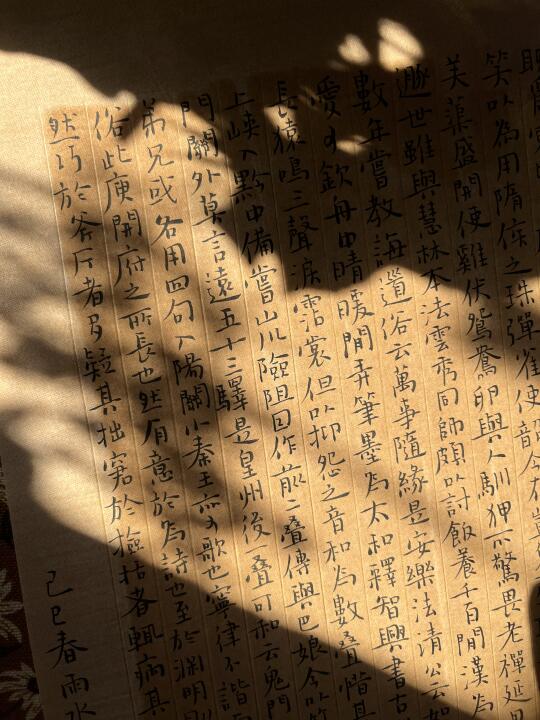 笑以為用隋侯之珠彈雀使韶令在
芙蕖盛開便雞伏鴛鴦卵與人馴狎不驚畏老禪延
遯世雖與慧林本法雲秀同師頗以討飯養千百閒漢為
數年嘗教誨道俗云萬事隨緣是安樂法清公云如
愛可欽舟中晴暖閒弄筆墨為太和釋智興書古
長猿鳴三聲淚霑裳但以抑怨之音和為數疊惜其
上峽入黔中備嘗山川險阻因作前二疊傳與巴娘令以竹
門關外莫言遠五十三驛是皇州後一疊可和云鬼門
弟兄或各用四句入陽關小秦王亦可歌也寧律不諧
俗此庾開府之所長也然有意於為詩也至於淵明則
然巧於斧斤者多疑其拙窘於檢括者輒病其
己巳春雨水